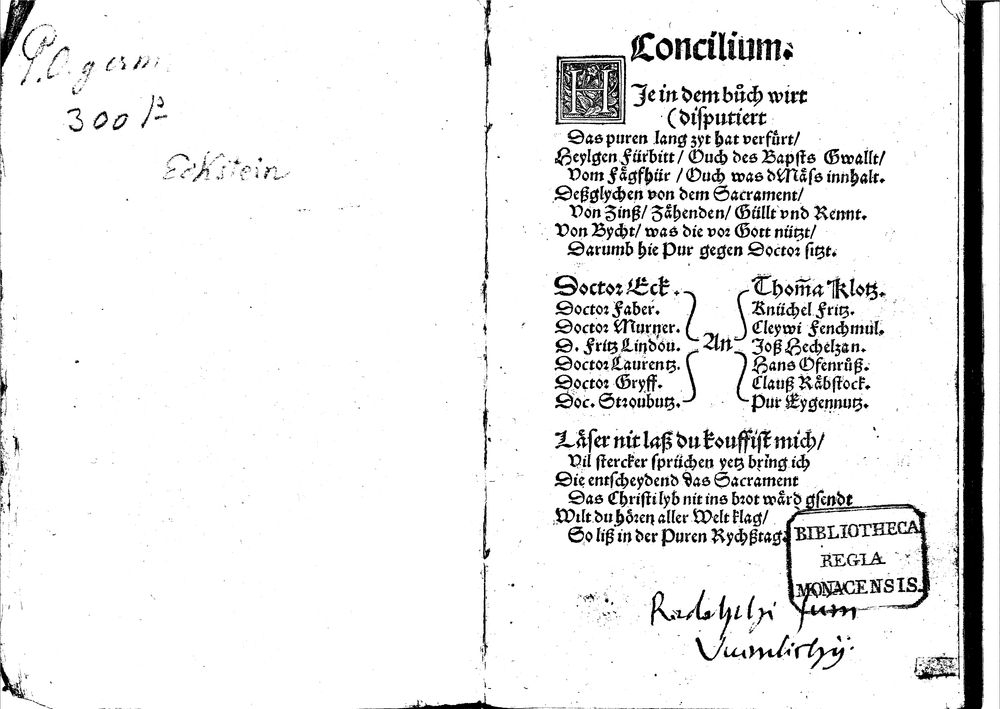 P.O. germ.
300 P
Eckstein
Concilium.
HJe in dem bůch wirt
(disputiert
Das puren lang zyt hat verfůrt/
Heylgen Fürbitt / Ouch des Bapsts Gwallt/
Vom Fågfhür / Ouch was dMåss innhalt.
Deßglychen von dem Sacrament/
Von Zinß/ Zåhenden/ Güllt vnd Rennt.
Von Bycht/ was die vor Gott nützt/
Darumb hie Pur gegen Doctor sitzt.
Doctor Eck.
Doctor Faber.
Doctor Murner.
D. Fritz Lindou.
Doctor Laurentz.
Doctor Gryff.
Doc. Stroubutz.
An
Thom̃a Klotz.
Knüchel Fritz.
Cleywi Fenchmul.
Joß Hechelzan.
Hans Ofenrůß.
Clauß Råbstock.
Pur Eygennutz.
Låser nit laß du kouffist mich/
Vil stercker sprüchen yetz bring ich
Die entscheydend das Sacrament
Das Christi lyb nit ins brot wård gsendt
Wilt du hören aller Welt klag/
So liß in der Puren Rychßtag.
BIBLIOTHECA
REGIA
MONACENSIS.
sum